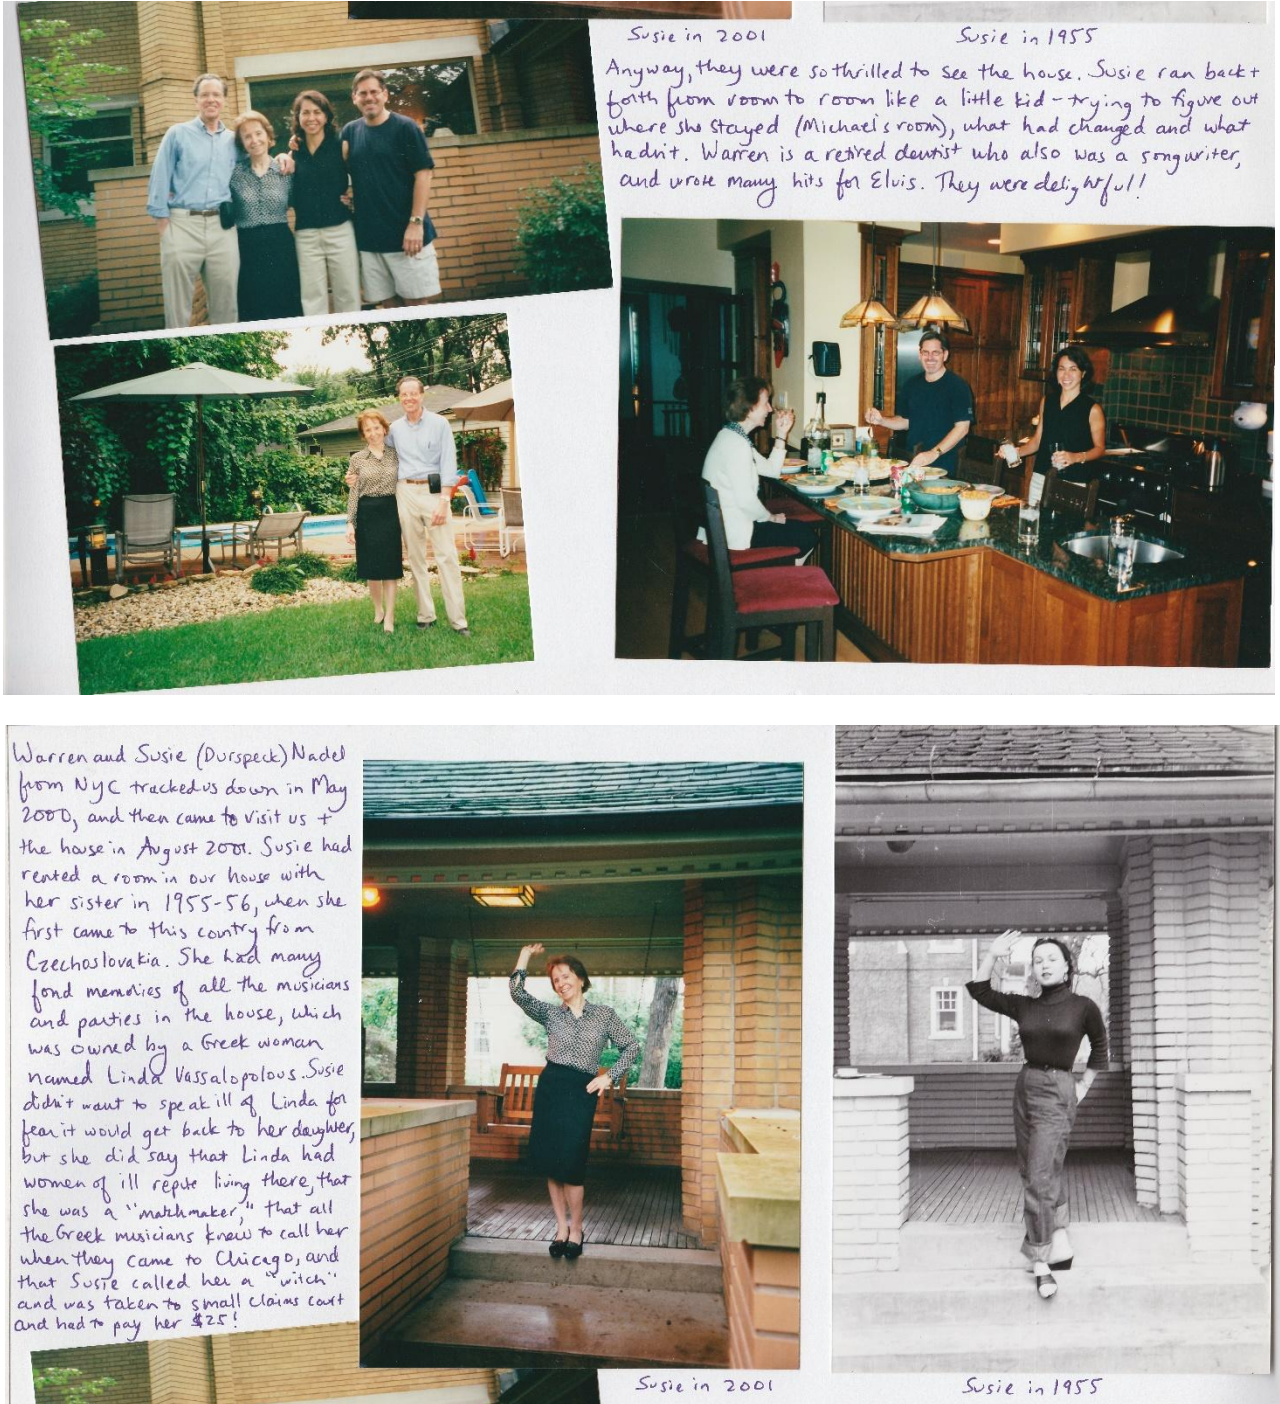 Susie in 2001
Susie in 1955
Anyway, they were so thrilled to see the house. Susie ran back +
forth from room to room like a little kid - trying to figure out
where she stayed (Michael's room), what had changed and what
hadn't. Warren is a retired dentist who also was a songwriter,
and wrote many hits for Elvis. They were delightful!
Warren and Susie (Durspeck) Nadel
from NYC tracked us down in May
2000, and then came to visit us +
the house in August 2001. Susie had
rented a room in our house with
her sister in 1955-56, when she
first came to this country from
Czechoslovakia. She had many
fond memories of all the musicians
and parties in the house, which
was owned by a Greek woman
named Linda Vassalopolous. Susie
didn't want to speak ill of Linda for
fear it would get back to her daughter,
but she did say that Linda had
women of ill repute living there, that
she was a "matchmaker," that all
the Greek musicians knew to call her
when they came to Chicago, and
that Susie called her a "witch"
and was taken to small claims court
and had to pay her $25!
Susie in 2001
Susie in 1955